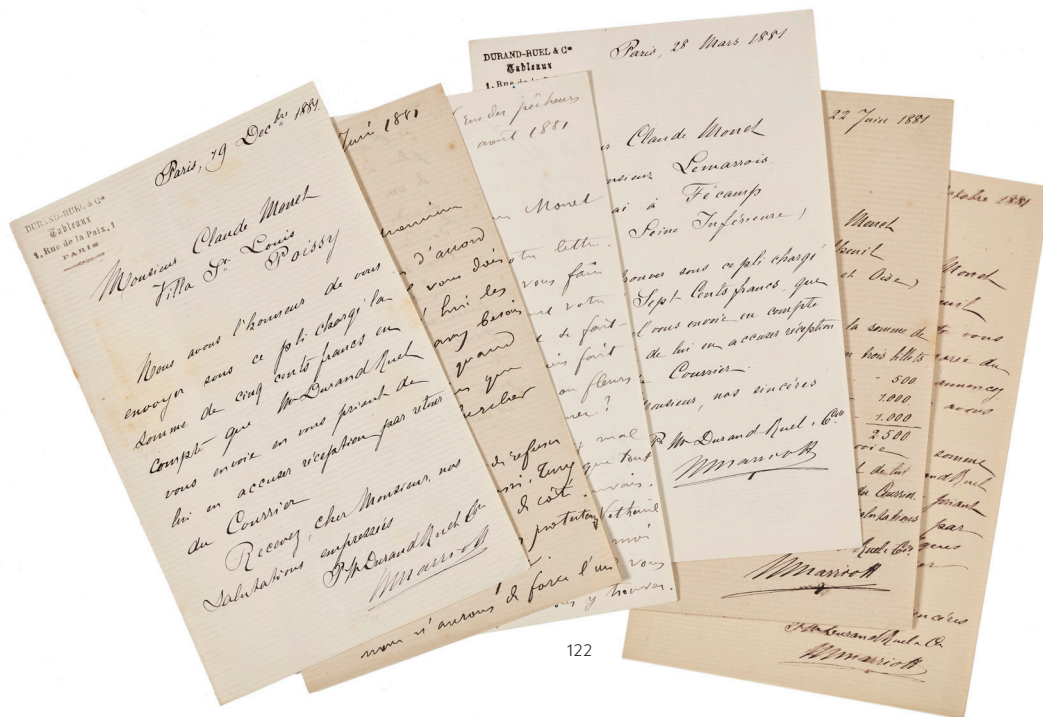 DURAND-RUEL & Cie
Tableaux
1, Rue de la Paix, 1
PARIS
Paris, 19 Decbre 1881.
Monsieur Claude Monet
Villa St Louis
Poissy
Nous avons l'honneur de vous
envoyer sous ce pli chargé la
somme de cinq cents francs en
compte que Mr Durand Ruel
vous envoie en vous priant de
lui en accuser réception par retour
du Courrier
Recevez, cher Monsieur, nos
salutations empressées
Pr Mr Durand Ruel & Cie
MMarriott
1881
d'avord
vous dois
les
besoin
quand
que
chercher
de refuser
de côté
protecteur
nous n'aurons de force l'un
des pêcheurs
août 1881
Monet
votre lettre.
vous faire
votre
se fait-
fort
fleurs
mal
que tout
Vetheuil
vous
y trouver.
DURAND-RUEL & Cie
Tableaux
Paris, 28 Mars 1881
Claude Monet
Lemarrois
à Fécamp
Seine Inférieure,
sous ce pli chargé
Sept Cents francs, que
vous envoie en compte
de lui en accuser réception
Courrier.
Monsieur, nos sincères
Pr Mr Durand Ruel & Cie
MMarriott
22 Juin 1881
Monet
et Oise,
la somme de
trois billets
- 500
- 1.000
- 1.000
2.500
de lui
du Courrier.
salutations
Ruel & Cie
MMarriott
octobre 1881
Monet
vous
du
somme
Ruel
priant
par
Pr Mr Durand Ruel & Cie
MMarriott
122